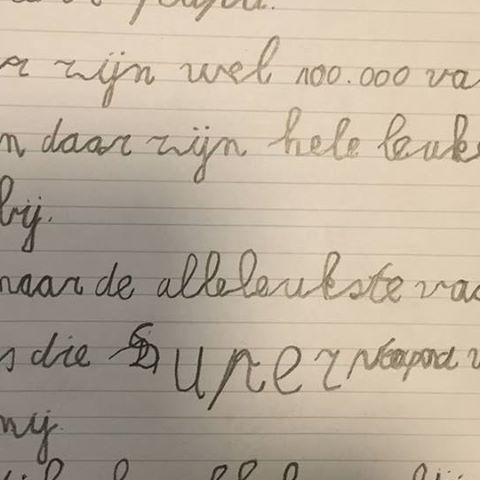 zijn wel 100.000 va
n daar zijn hele leuk
bij.
maar de alleleukste va
s die Super
mij.